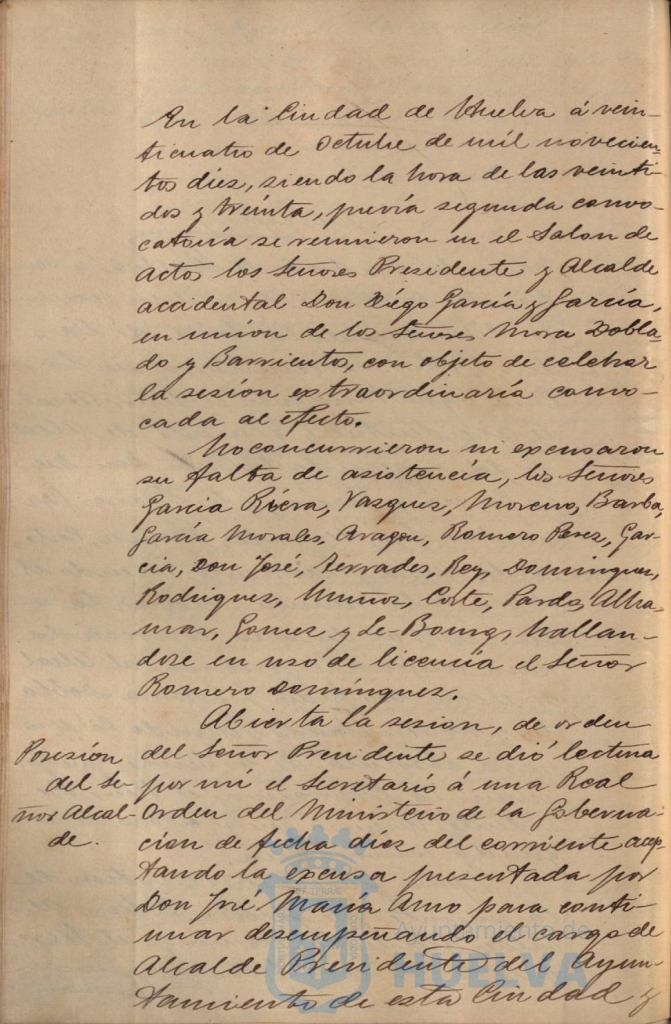 En la Ciudad de Huelva á vein-
ticuatro de Octubre de mil novecien-
tos diez, siendo la hora de las veinti-
dos y treinta, prévia segunda convo-
catoria se reunieron en el Salon de
Actos los Señores Presidente y Alcalde
accidental Don Diégo García y García,
en unión de los Señores Mora Dobla-
do y Barrientos, con objeto de celebrar
la sesión extraordinaría convo-
cada al efecto.
No concurrieron ni excusaron
su falta de asistencia, los Señores
Garcia Riéra, Vazquez, Moreno, Barba,
García Morales, Aragon, Romero Perez, Gar-
cia, Don José, Terrades, Rey, Dominguez,
Rodriguez, Muñoz, Corte, Pardo, Alha-
mar, Gomez y Le-Bourg, hallan-
dose en uso de licencia el Señor
Romero Domínguez.
Abierta la sesion, de orden
Posesión del Señor Presidente se dió lectura
del Se- por mi el Secretarió á una Real
ñor Alcal- Orden del Ministerio de la Goberna-
de. cion de fecha diez del corriente acep-
tando la excusa presentada por
Don José María Amo para conti-
nuar desempeñando el cargo de
Alcalde Presidente del Ayun-
tamiento de esta Ciudad y
Ayuntamiento de
HUELVA